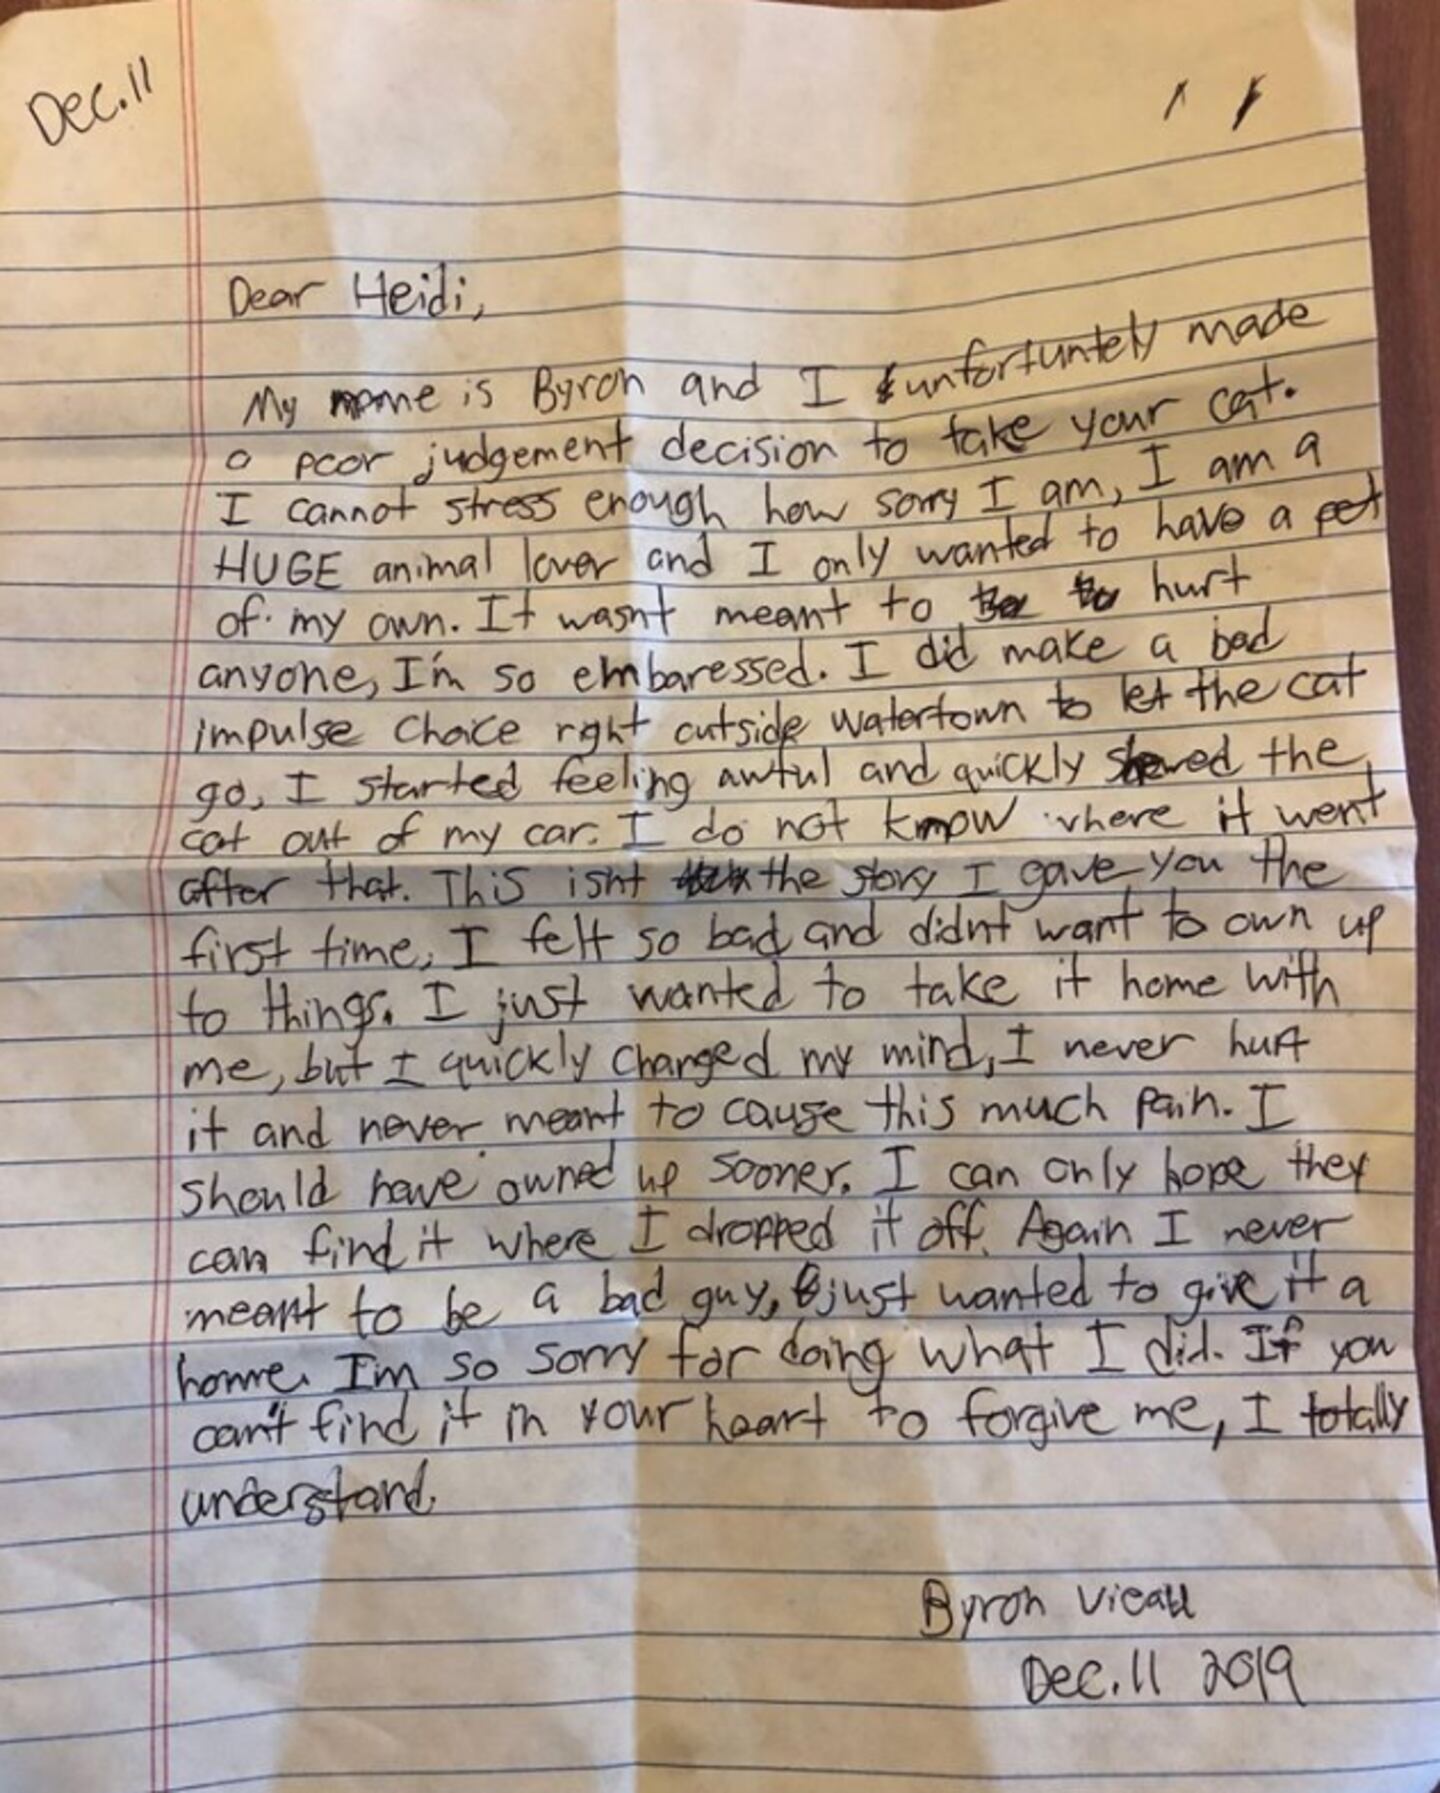 Dec. 11
Dear Heidi,
My name is Byron and I unfortuntely made
a poor judgement decision to take your cat.
I cannot stress enough how sorry I am, I am a
HUGE animal lover and I only wanted to have a pet
of my own. It wasnt meant to hurt
anyone, I'm so embaressed. I did make a bad
impulse choice right outside Watertown to let the cat
go, I started feeling awful and quickly shoved the
cat out of my car. I do not know where it went
after that. This isnt the story I gave you the
first time, I felt so bad and didnt want to own up
to things. I just wanted to take it home with
me, but I quickly changed my mind, I never hurt
it and never meant to cause this much pain. I
should have owned up sooner. I can only hope they
can find it where I dropped it off. Again I never
meant to be a bad guy, just wanted to give it a
home. I'm so sorry for doing what I did. If you
can't find it in your heart to forgive me, I totally
understand.
Byron
Dec. 11 2019